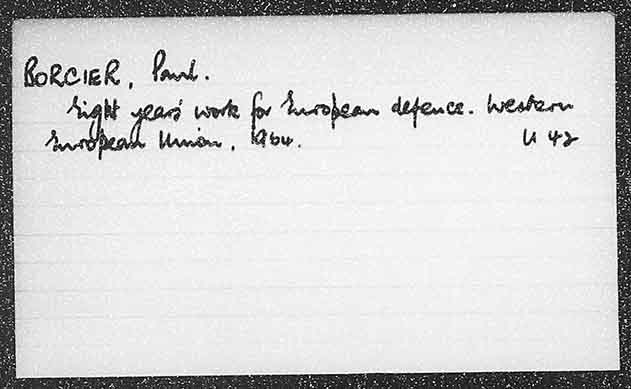 BORCIER, Paul.
Eight years' work for European defence. Western
European Union, 1964. U 42